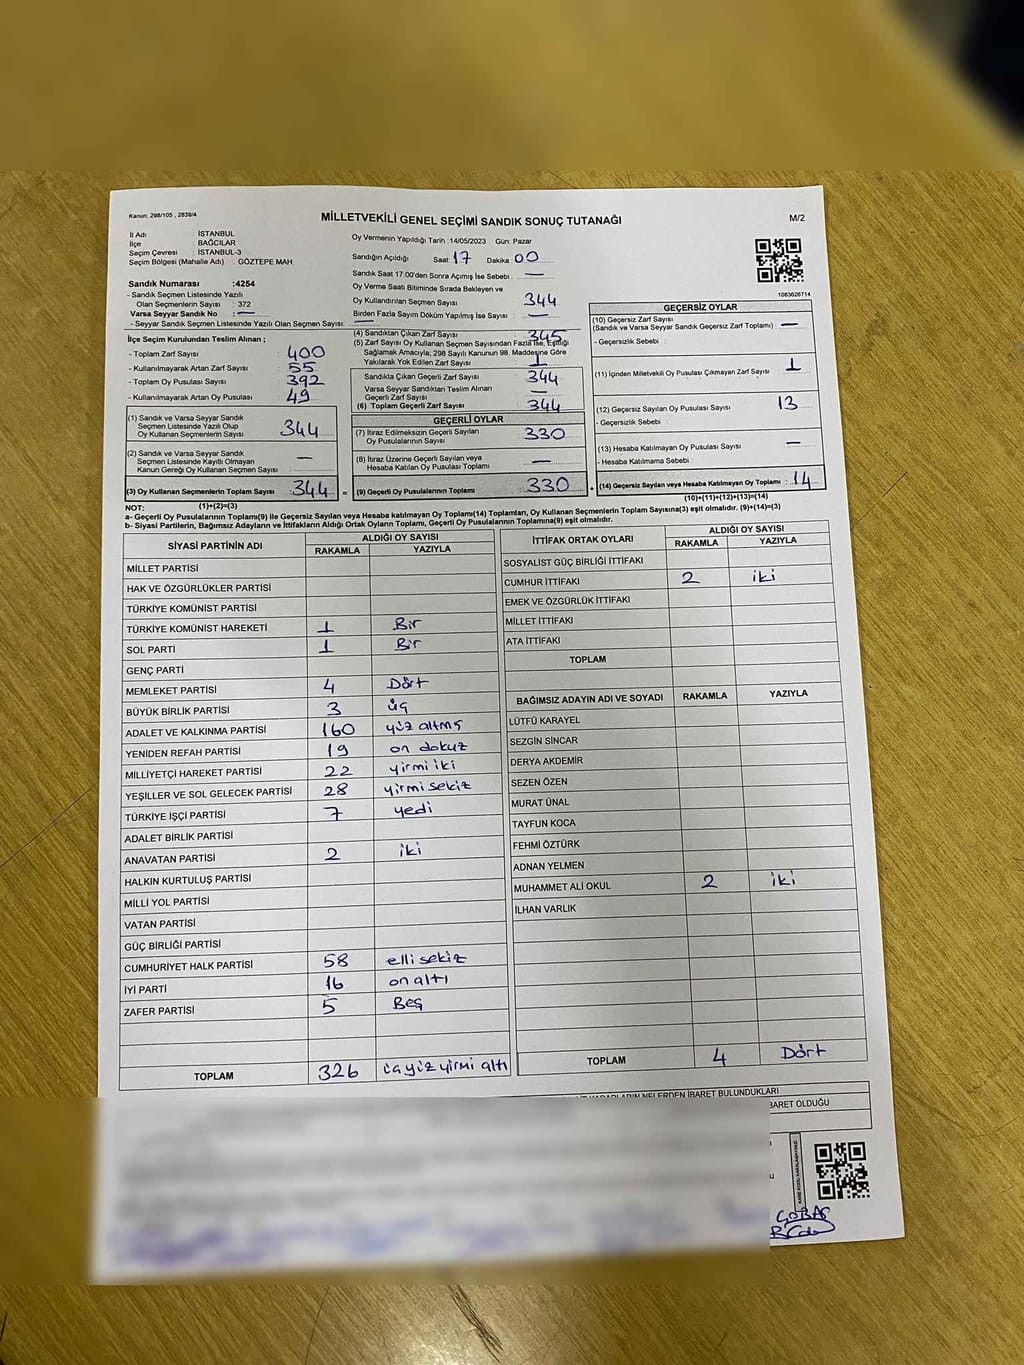 Kanun: 298/105 , 2839/4
MİLLETVEKİLİ GENEL SEÇİMİ SANDIK SONUÇ TUTANAĞI
M/2
İl Adı : İSTANBUL
İlçe : BAĞCILAR
Seçim Çevresi : İSTANBUL-3
Seçim Bölgesi (Mahalle Adı) : GÖZTEPE MAH.
Sandık Numarası :4254
- Sandık Seçmen Listesinde Yazılı
Olan Seçmenlerin Sayısı : 372
Varsa Seyyar Sandık No : —
- Seyyar Sandık Seçmen Listesinde Yazılı Olan Seçmen Sayısı: —
İlçe Seçim Kurulundan Teslim Alınan ;
- Toplam Zarf Sayısı : 400
- Kullanılmayarak Artan Zarf Sayısı : 55
- Toplam Oy Pusulası Sayısı : 392
- Kullanılmayarak Artan Oy Pusulası : 49
(1) Sandık ve Varsa Seyyar Sandık
Seçmen Listesinde Yazılı Olup
Oy Kullanan Seçmenlerin Sayısı : 344
(2) Sandık ve Varsa Seyyar Sandık
Seçmen Listesinde Kayıtlı Olmayan
Kanun Gereği Oy Kullanan Seçmen Sayısı : —
(3) Oy Kullanan Seçmenlerin Toplam Sayısı : 344
(1)+(2)=(3)
Oy Vermenin Yapıldığı Tarih :14/05/2023 Gün: Pazar
Sandığın Açıldığı Saat 17 Dakika 00
Sandık Saat 17:00'den Sonra Açımış İse Sebebi : —
Oy Verme Saati Bitiminde Sırada Bekleyen ve
Oy Kullandırılan Seçmen Sayısı : 344
Birden Fazla Sayım Döküm Yapılmış İse Sayısı : —
(4) Sandıktan Çıkan Zarf Sayısı : 345
(5) Zarf Sayısı Oy Kullanan Seçmen Sayısından Fazla İse, Eşitliği
Sağlamak Amacıyla, 298 Sayılı Kanunun 98. Maddesine Göre
Yakılarak Yok Edilen Zarf Sayısı : 1
Sandıkta Çıkan Geçerli Zarf Sayısı : 344
Varsa Seyyar Sandıktan Teslim Alınan
Geçerli Zarf Sayısı : —
(6) Toplam Geçerli Zarf Sayısı : 344
GEÇERLİ OYLAR
(7) İtiraz Edilmeksizin Geçerli Sayılan
Oy Pusulalarının Sayısı : 330
(8) İtiraz Üzerine Geçerli Sayılan veya
Hesaba Katılan Oy Pusulası Toplamı : —
= (9) Geçerli Oy Pusulalarının Toplamı : 330 +
1083626714
GEÇERSİZ OYLAR
(10) Geçersiz Zarf Sayısı
(Sandık ve Varsa Seyyar Sandık Geçersiz Zarf Toplamı) : —
- Geçersizlik Sebebi :
(11) İçinden Milletvekili Oy Pusulası Çıkmayan Zarf Sayısı : 1
(12) Geçersiz Sayılan Oy Pusulası Sayısı : 13
- Geçersizlik Sebebi :
(13) Hesaba Katılmayan Oy Pusulası Sayısı : —
- Hesaba Katılmama Sebebi :
(14) Geçersiz Sayılan veya Hesaba Katılmayan Oy Toplamı : 14
(10)+(11)+(12)+(13)=(14)
NOT:
a- Geçerli Oy Pusulalarının Toplamı(9) ile Geçersiz Sayılan veya Hesaba Katılmayan Oy Toplamı(14) Toplamları, Oy Kullanan Seçmenlerin Toplam Sayısına(3) eşit olmalıdır. (9)+(14)=(3)
b- Siyasi Partilerin, Bağımsız Adayların ve İttifakların Aldığı Ortak Oyların Toplamı, Geçerli Oy Pusulalarının Toplamına(9) eşit olmalıdır.
SİYASİ PARTİNİN ADI ALDIĞI OY SAYISI
RAKAMLA YAZIYLA
MİLLET PARTİSİ
HAK VE ÖZGÜRLÜKLER PARTİSİ
TÜRKİYE KOMÜNİST PARTİSİ
TÜRKİYE KOMÜNİST HAREKETİ 1 Bir
SOL PARTİ 1 Bir
GENÇ PARTİ
MEMLEKET PARTİSİ 4 Dört
BÜYÜK BİRLİK PARTİSİ 3 üç
ADALET VE KALKINMA PARTİSİ 160 yüz altmış
YENİDEN REFAH PARTİSİ 19 on dokuz
MİLLİYETÇİ HAREKET PARTİSİ 22 yirmi iki
YEŞİLLER VE SOL GELECEK PARTİSİ 28 yirmi sekiz
TÜRKİYE İŞÇİ PARTİSİ 7 yedi
ADALET BİRLİK PARTİSİ
ANAVATAN PARTİSİ 2 iki
HALKIN KURTULUŞ PARTİSİ
MİLLİ YOL PARTİSİ
VATAN PARTİSİ
GÜÇ BİRLİĞİ PARTİSİ
CUMHURİYET HALK PARTİSİ 58 elli sekiz
İYİ PARTİ 16 on altı
ZAFER PARTİSİ 5 Beş
TOPLAM 326 üçyüz yirmi altı
İTTİFAK ORTAK OYLARI ALDIĞI OY SAYISI
RAKAMLA YAZIYLA
SOSYALİST GÜÇ BİRLİĞİ İTTİFAKI
CUMHUR İTTİFAKI 2 iki
EMEK VE ÖZGÜRLÜK İTTİFAKI
MİLLET İTTİFAKI
ATA İTTİFAKI
TOPLAM
BAĞIMSIZ ADAYIN ADI VE SOYADI RAKAMLA YAZIYLA
LÜTFÜ KARAYEL
SEZGİN SİNCAR
DERYA AKDEMİR
SEZEN ÖZEN
MURAT ÜNAL
TAYFUN KOCA
FEHMİ ÖZTÜRK
ADNAN YELMEN
MUHAMMET ALİ OKUL 2 iki
İLHAN VARLIK
TOPLAM 4 Dört
KARARLARIN NELERDEN İBARET BULUNDUKLARI
BARET OLDUĞU